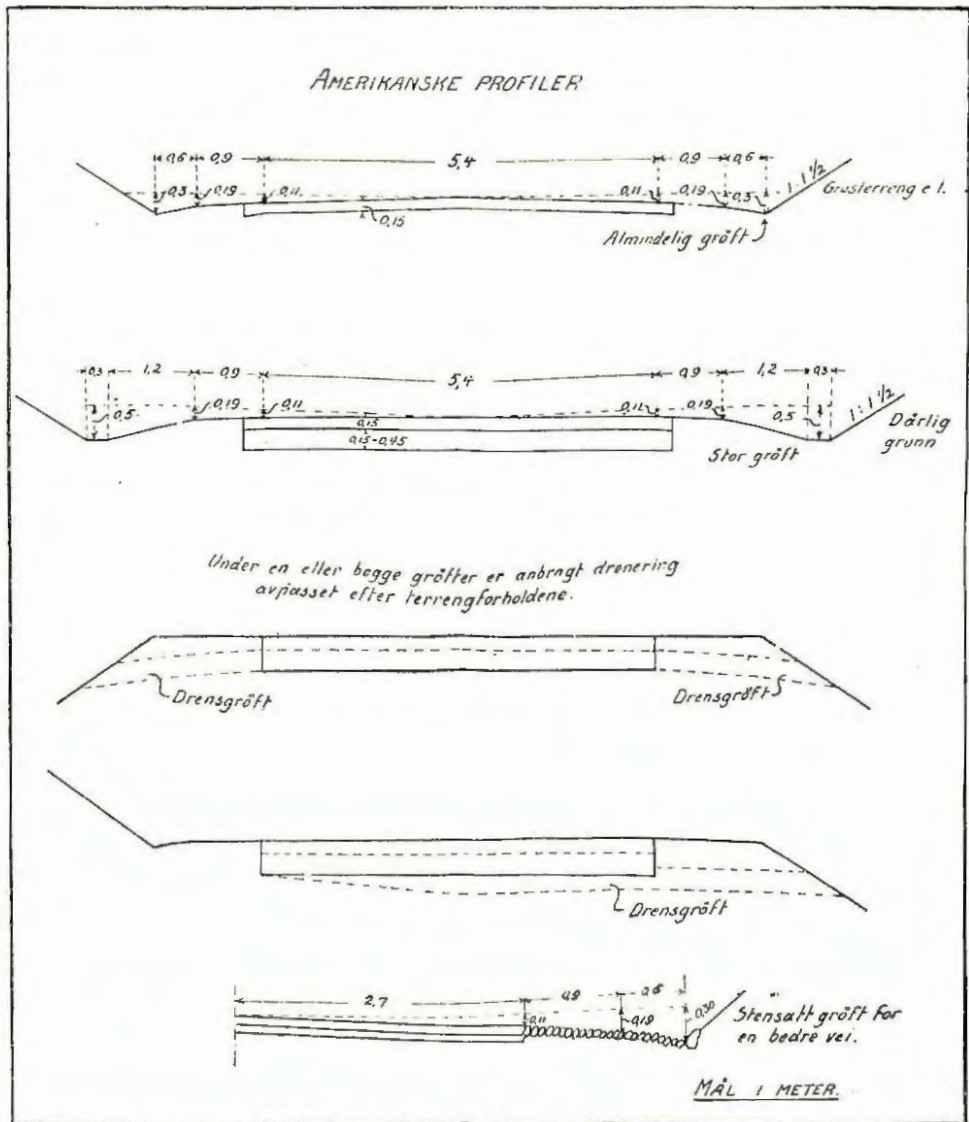 AMERIKANSKE PROFILER
0,6 0,9 5,4 0,9 0,6
0,3 0,19 0,11 0,11 0,19 0,3 1:1 1/2
0,15
Grusterreng e l.
Almindelig gröft
0,3 1,2 0,9 5,4 0,9 1,2 0,3
0,5 0,19 0,11 0,11 0,19 0,5 1:1 1/2
0,15
0,15-0,45
Dårlig
grunn
Stor gröft
Under en eller begge gröfter er anbragt drenering
avpasset efter terrengforholdene.
Drensgröft Drensgröft
Drensgröft
2,7 0,9 0,6
0,11 0,19 0,30
Stensatt gröft for
en bedre vei.
MÅL I METER.